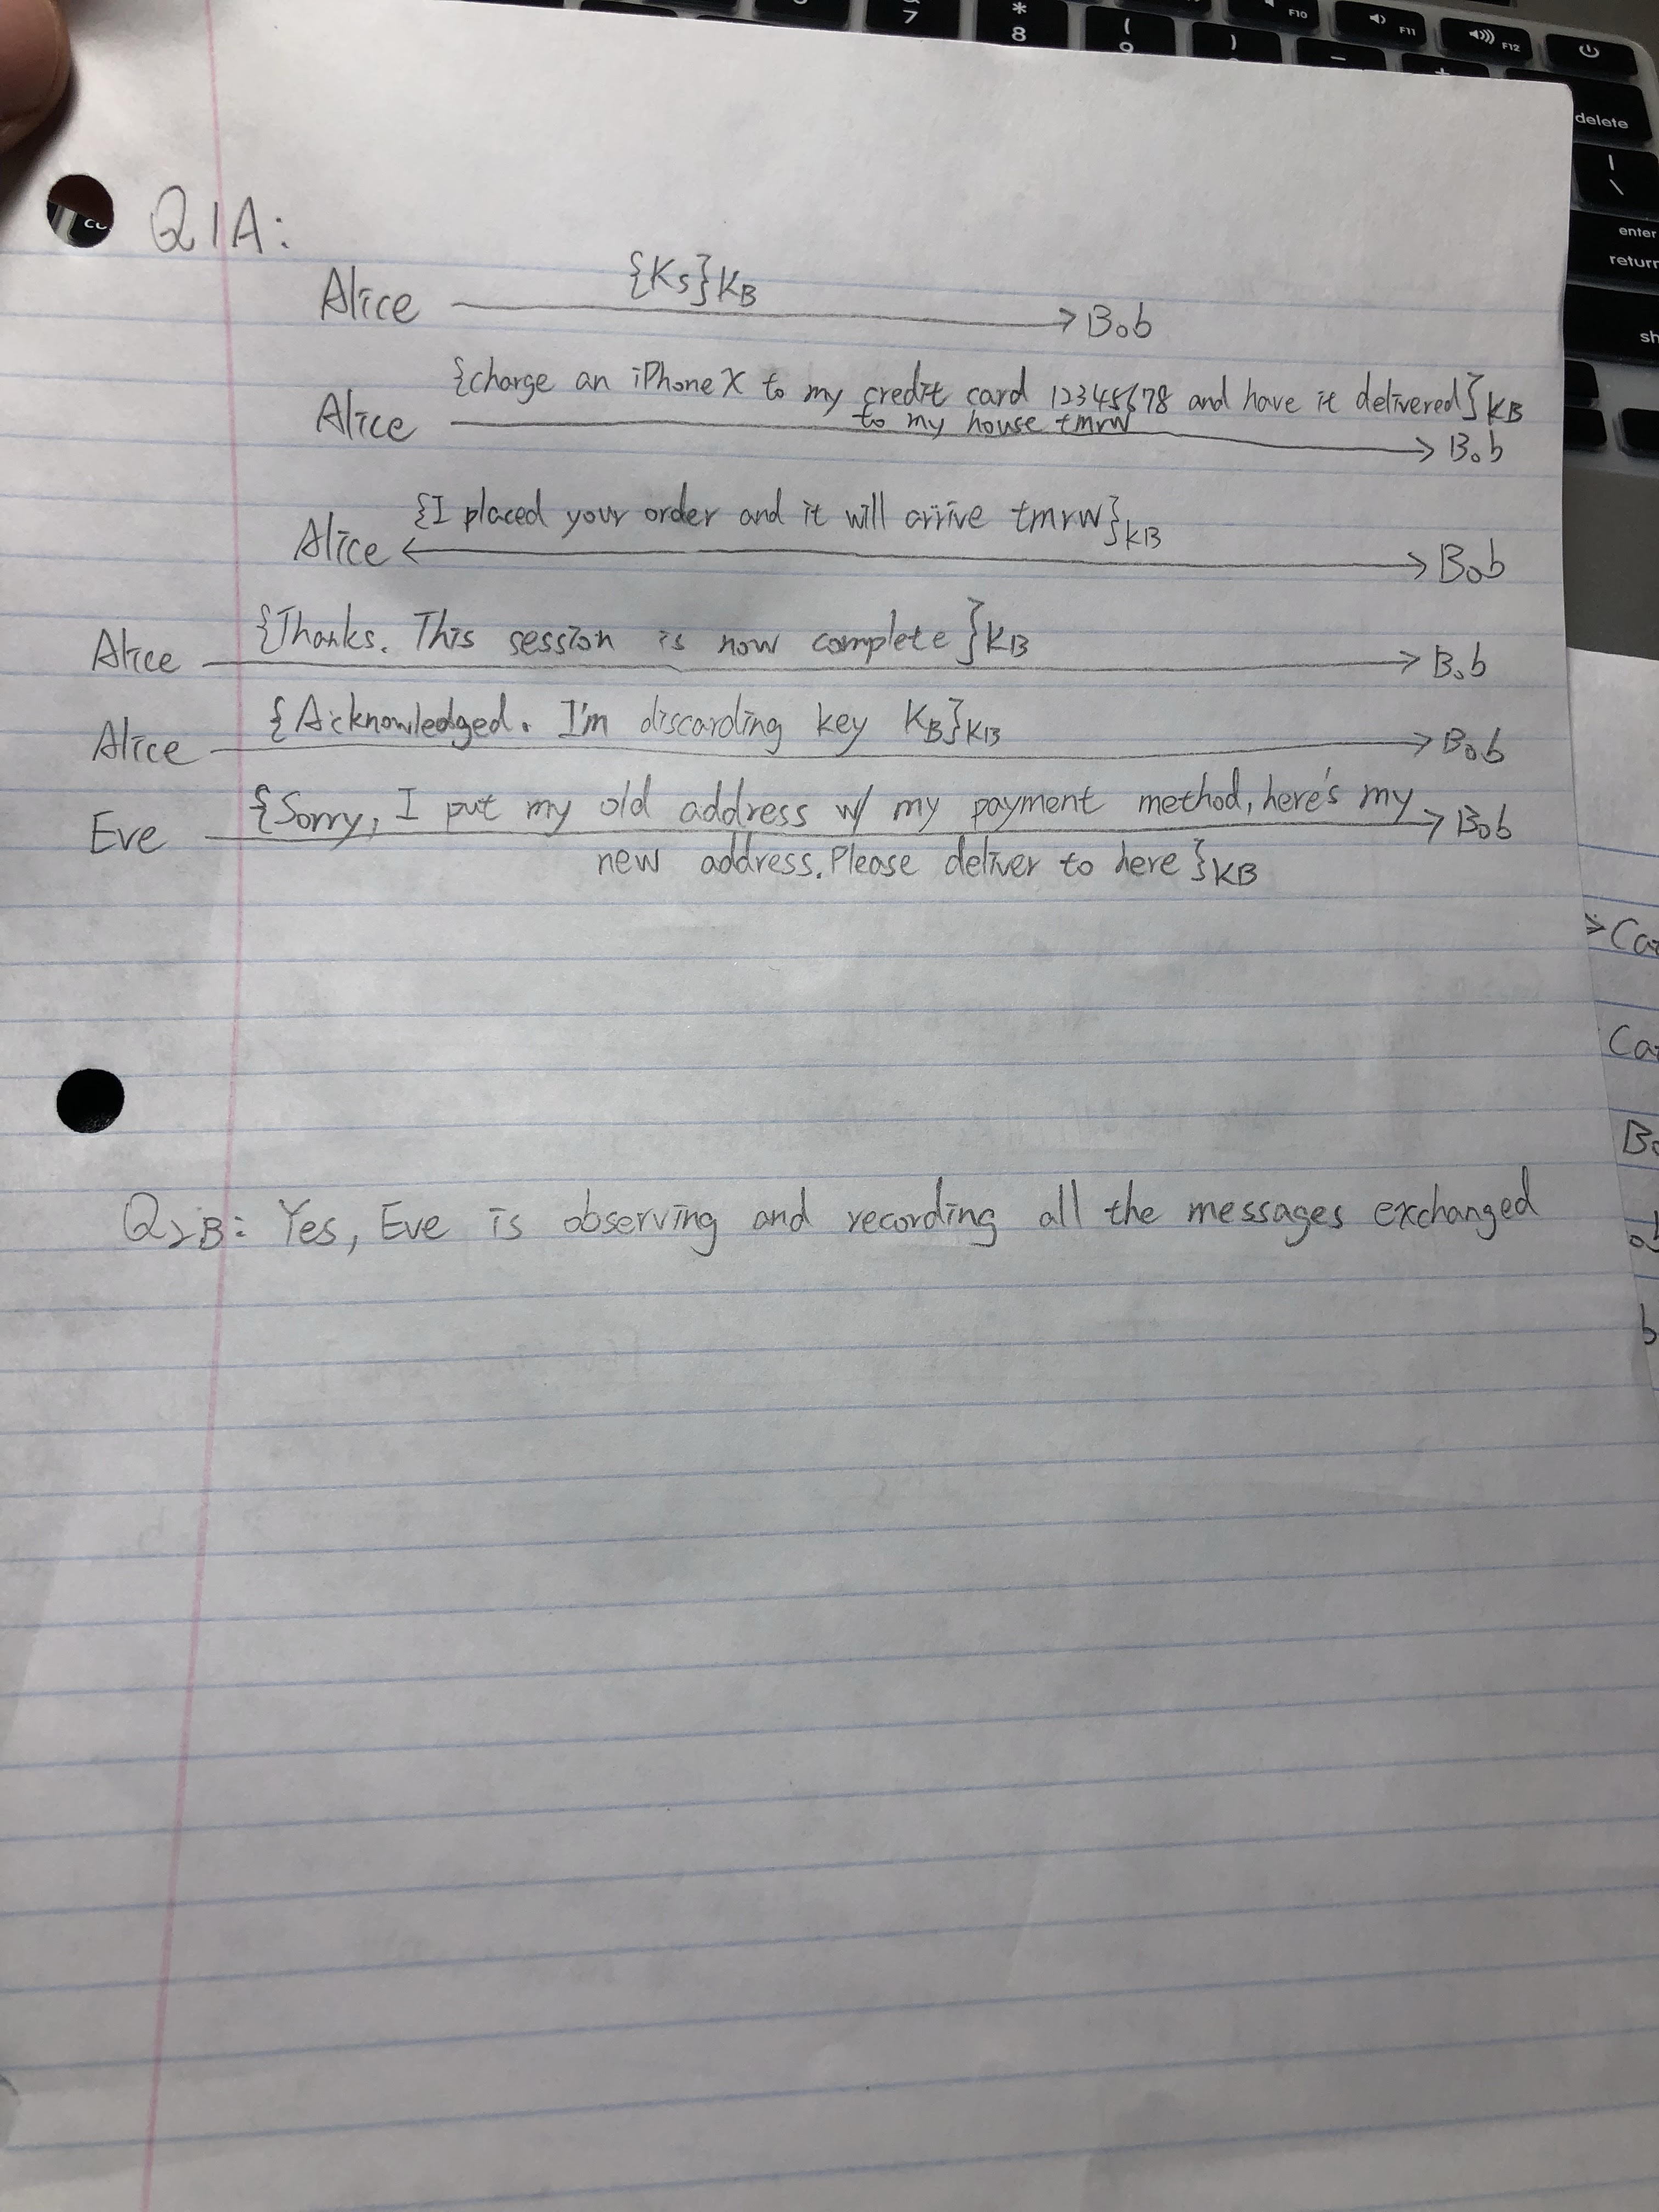 7
*
8
(
9
)
F10
F11
F12
delete
|
\
enter
return
sh
Q1A:
{Ks}KB
Alice → Bob
{charge an iPhone X to my credit card 12345678 and have it delivered}KB
to my house tmrw
Alice → Bob
{I placed your order and it will arrive tmrw}KB
Alice ↔ Bob
{Thanks. This session is now complete}KB
Alice → Bob
{Acknowledged. I'm discarding key KB}KB
Alice → Bob
{Sorry, I put my old address w/ my payment method, here's my
Eve → Bob
new address. Please deliver to here}KB
Q2B: Yes, Eve is observing and recording all the messages exchanged